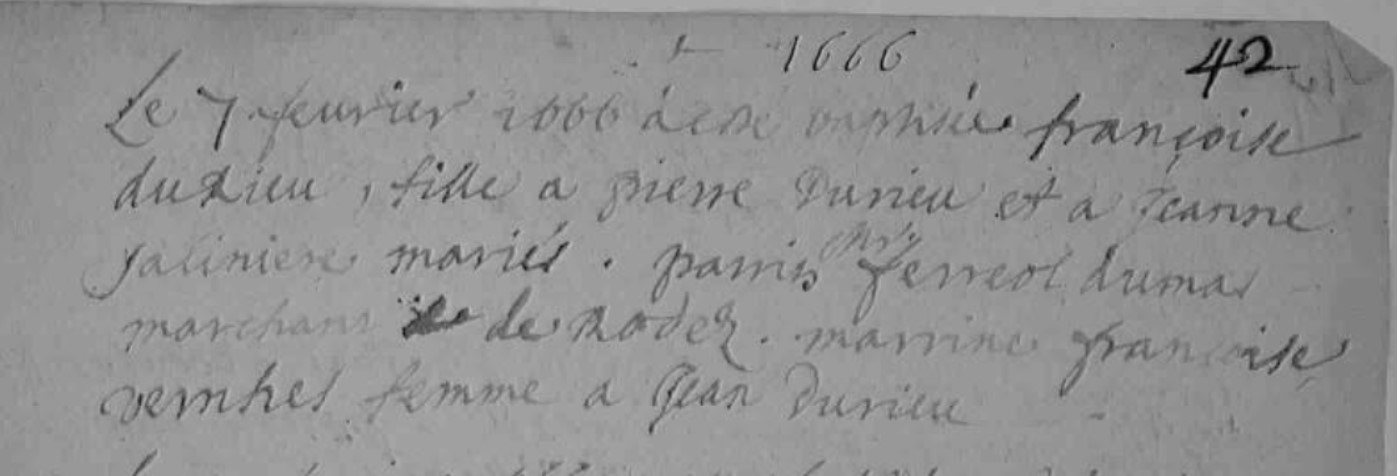 1666 42
Le 7 feurier 1666 a este baptisée françoise
duRieu, fille a pierre Durieu et a Jeanne
Jaliniere mariés. parrin Ferreol dumas
marchant de Rodez. marrine françoise
vernhes femme a Jean Durieu